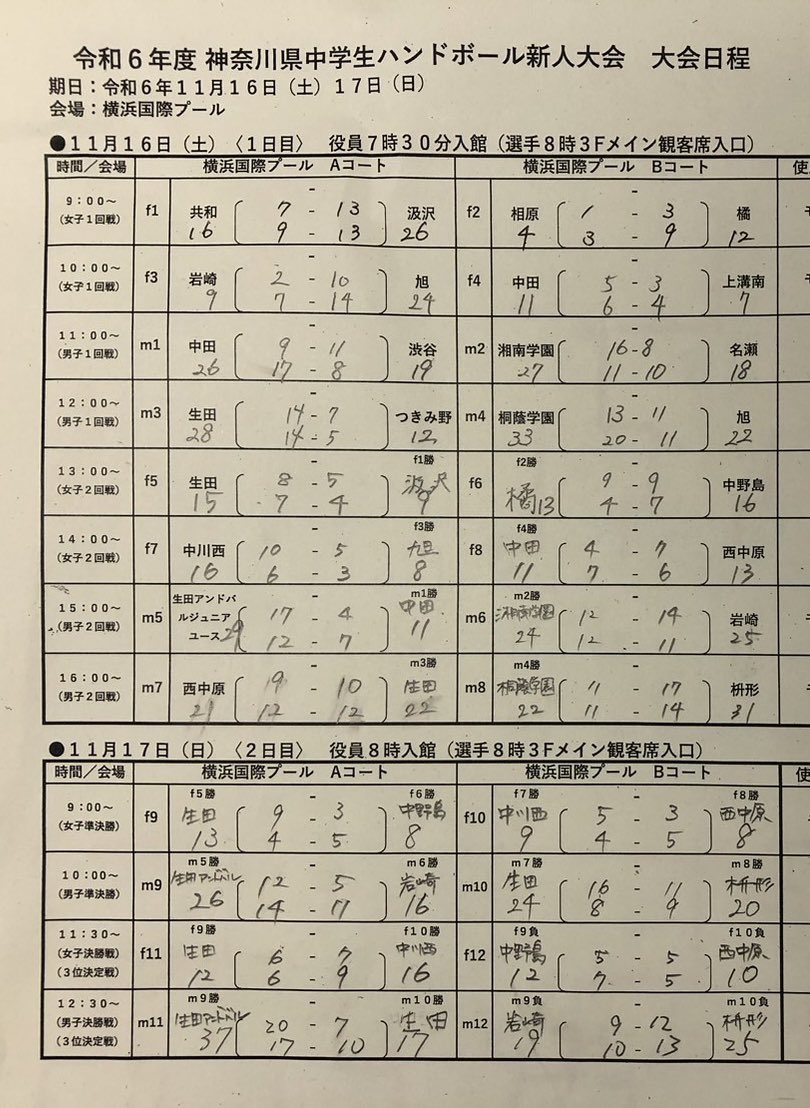 令和６年度 神奈川県中学生ハンドボール新人大会　大会日程
期日：令和６年１１月１６日（土）１７日（日）
会場：横浜国際プール
●１１月１６日（土）〈１日目〉　役員７時３０分入館（選手８時３Ｆメイン観客席入口）
時間／会場　横浜国際プール　Ａコート　横浜国際プール　Ｂコート
９：００～
（女子１回戦）
f1　共和　7 - 13　汲沢
16　9 - 13　26
f2　相原　1 - 3　橘
4　3 - 9　12
１０：００～
（女子１回戦）
f3　岩崎　2 - 10　旭
9　7 - 14　24
f4　中田　5 - 3　上溝南
11　6 - 4　7
１１：００～
（男子１回戦）
m1　中田　9 - 11　渋谷
26　17 - 8　19
m2　湘南学園　16 - 8　名瀬
27　11 - 10　18
１２：００～
（男子１回戦）
m3　生田　14 - 7　つきみ野
28　14 - 5　12
m4　桐蔭学園　13 - 11　旭
33　20 - 11　22
１３：００～
（女子２回戦）
f1勝
f5　生田　8 - 5　汲沢
15　7 - 4　9
f2勝
f6　橘　9 - 9　中野島
13　4 - 7　16
１４：００～
（女子２回戦）
f3勝
f7　中川西　10 - 5　旭
16　6 - 3　8
f4勝
f8　中田　4 - 7　西中原
11　7 - 6　13
１５：００～
（男子２回戦）
m1勝
m5　生田アンドバルジュニアユース　17 - 4　中田
29　12 - 7　11
m2勝
m6　湘南学園　12 - 14　岩崎
24　12 - 11　25
１６：００～
（男子２回戦）
m3勝
m7　西中原　9 - 10　生田
21　12 - 12　22
m4勝
m8　桐蔭学園　11 - 17　枡形
22　11 - 14　31
●１１月１７日（日）〈２日目〉　役員８時入館（選手８時３Ｆメイン観客席入口）
時間／会場　横浜国際プール　Ａコート　横浜国際プール　Ｂコート
９：００～
（女子準決勝）
f5勝　f6勝
f9　生田　9 - 3　中野島
13　4 - 5　8
f7勝　f8勝
f10　中川西　5 - 3　西中原
9　4 - 5　8
１０：００～
（男子準決勝）
m5勝　m6勝
m9　生田アンドバル　12 - 5　岩崎
26　14 - 11　16
m7勝　m8勝
m10　生田　16 - 11　枡形
24　8 - 9　20
１１：３０～
（女子決勝戦）
（３位決定戦）
f9勝　f10勝
f11　生田　6 - 7　中川西
12　6 - 9　16
f9負　f10負
f12　中野島　5 - 5　西中原
12　7 - 5　10
１２：３０～
（男子決勝戦）
（３位決定戦）
m9勝　m10勝
m11　生田アンドバル　20 - 7　生田
37　17 - 10　17
m9負　m10負
m12　岩崎　9 - 12　枡形
19　10 - 13　25